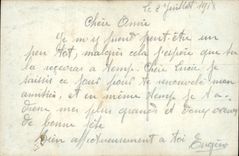 le 2 Juillet 19
Chère Amie
Je m'y prend peut-être un
peu tôt, malgré cela j'espère que tu
la recevras à temp. Chère je
saisis ce jour pour te renouvelé mon
amitiés, et en même temp je t'a
dresse mes plus grands et doux vœux
de bonne fête
bien affectueusement a toi Eugène